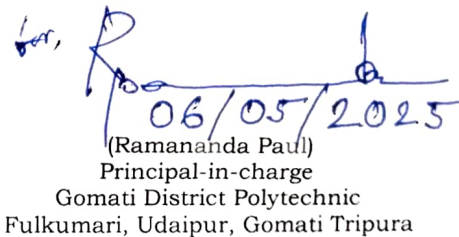 for,
06/05/2025
(Ramananda Paul)
Principal-in-charge
Gomati District Polytechnic
Fulkumari, Udaipur, Gomati Tripura